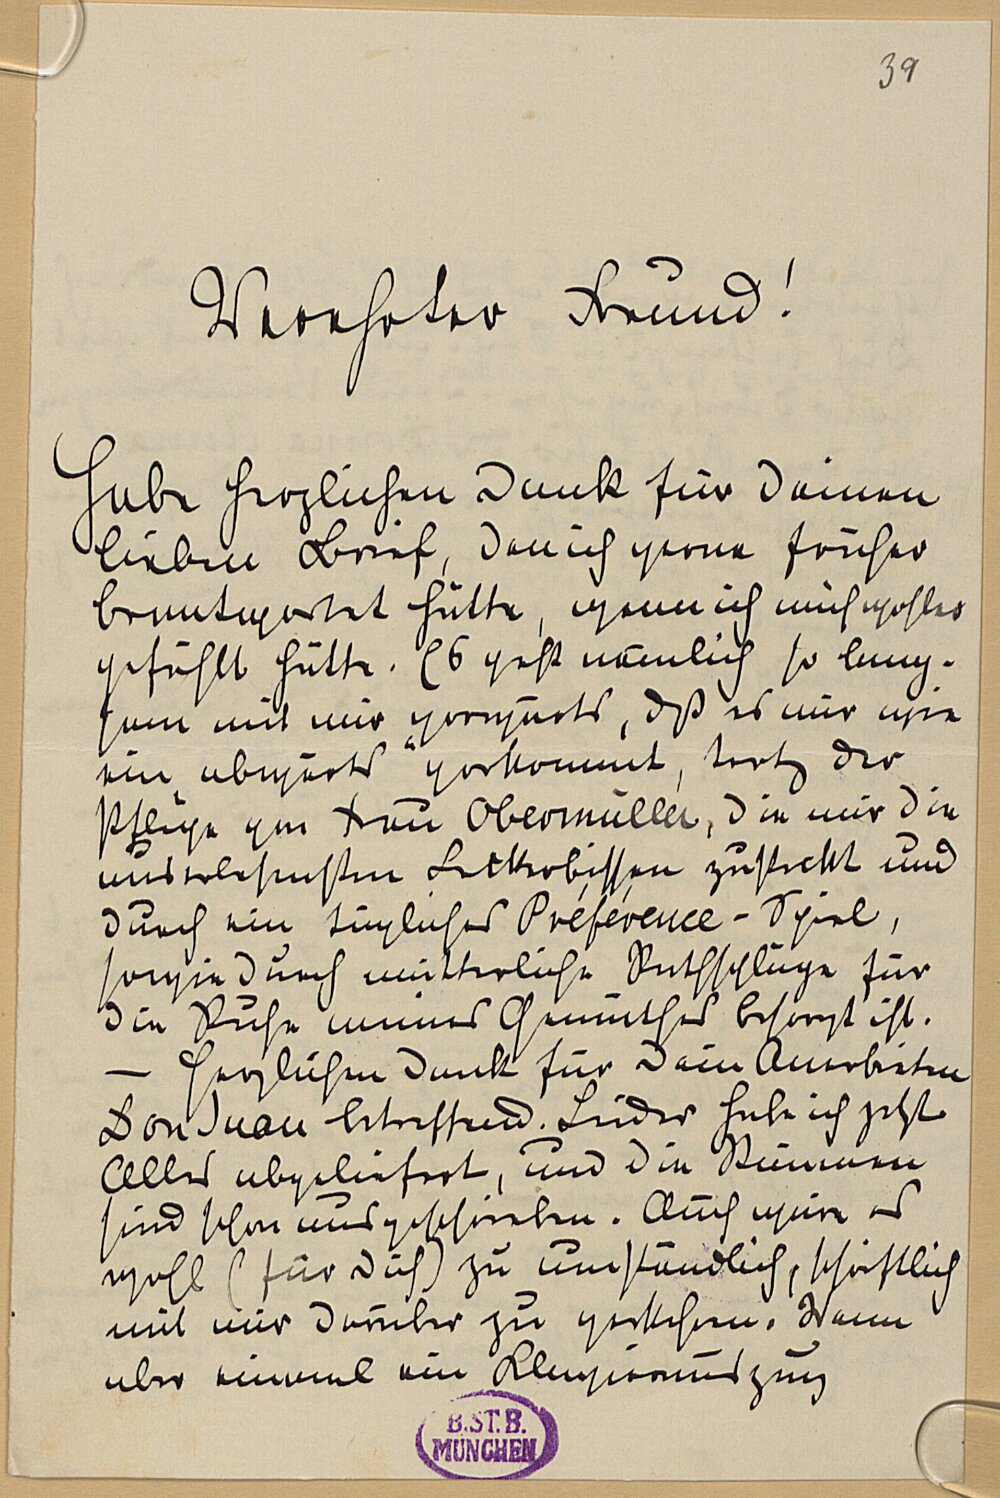 39
Verehrter Freund!
Habe herzlichen Dank für Deinen
lieben Brief, den ich gerne früher
beantwortet hätte, wenn ich mich wohler
gefühlt hätte. Es geht nämlich so lang-
sam mit mir vorwärts, daß es mir wie
ein „abwärts" vorkommt, trotz der
Pflege von Frau Obermüller, die mir die
auserlesensten Leckerbissen zusteckt und
durch ein tägliches Préférence-Spiel,
sowie durch mütterliche Rathschläge für
die Ruhe meines Gemüthes besorgt ist.
— Herzlichen Dank für Dein Anerbieten
Don Juan betreffend. Leider habe ich jetzt
Alles abgeliefert, und die Stimmen
sind schon ausgeschrieben. Auch wäre es
wohl (für Dich) zu umständlich, schriftlich
mit mir darüber zu verkehren. Wenn
aber einmal ein Klavierauszug
B.ST.B.
MÜNCHEN